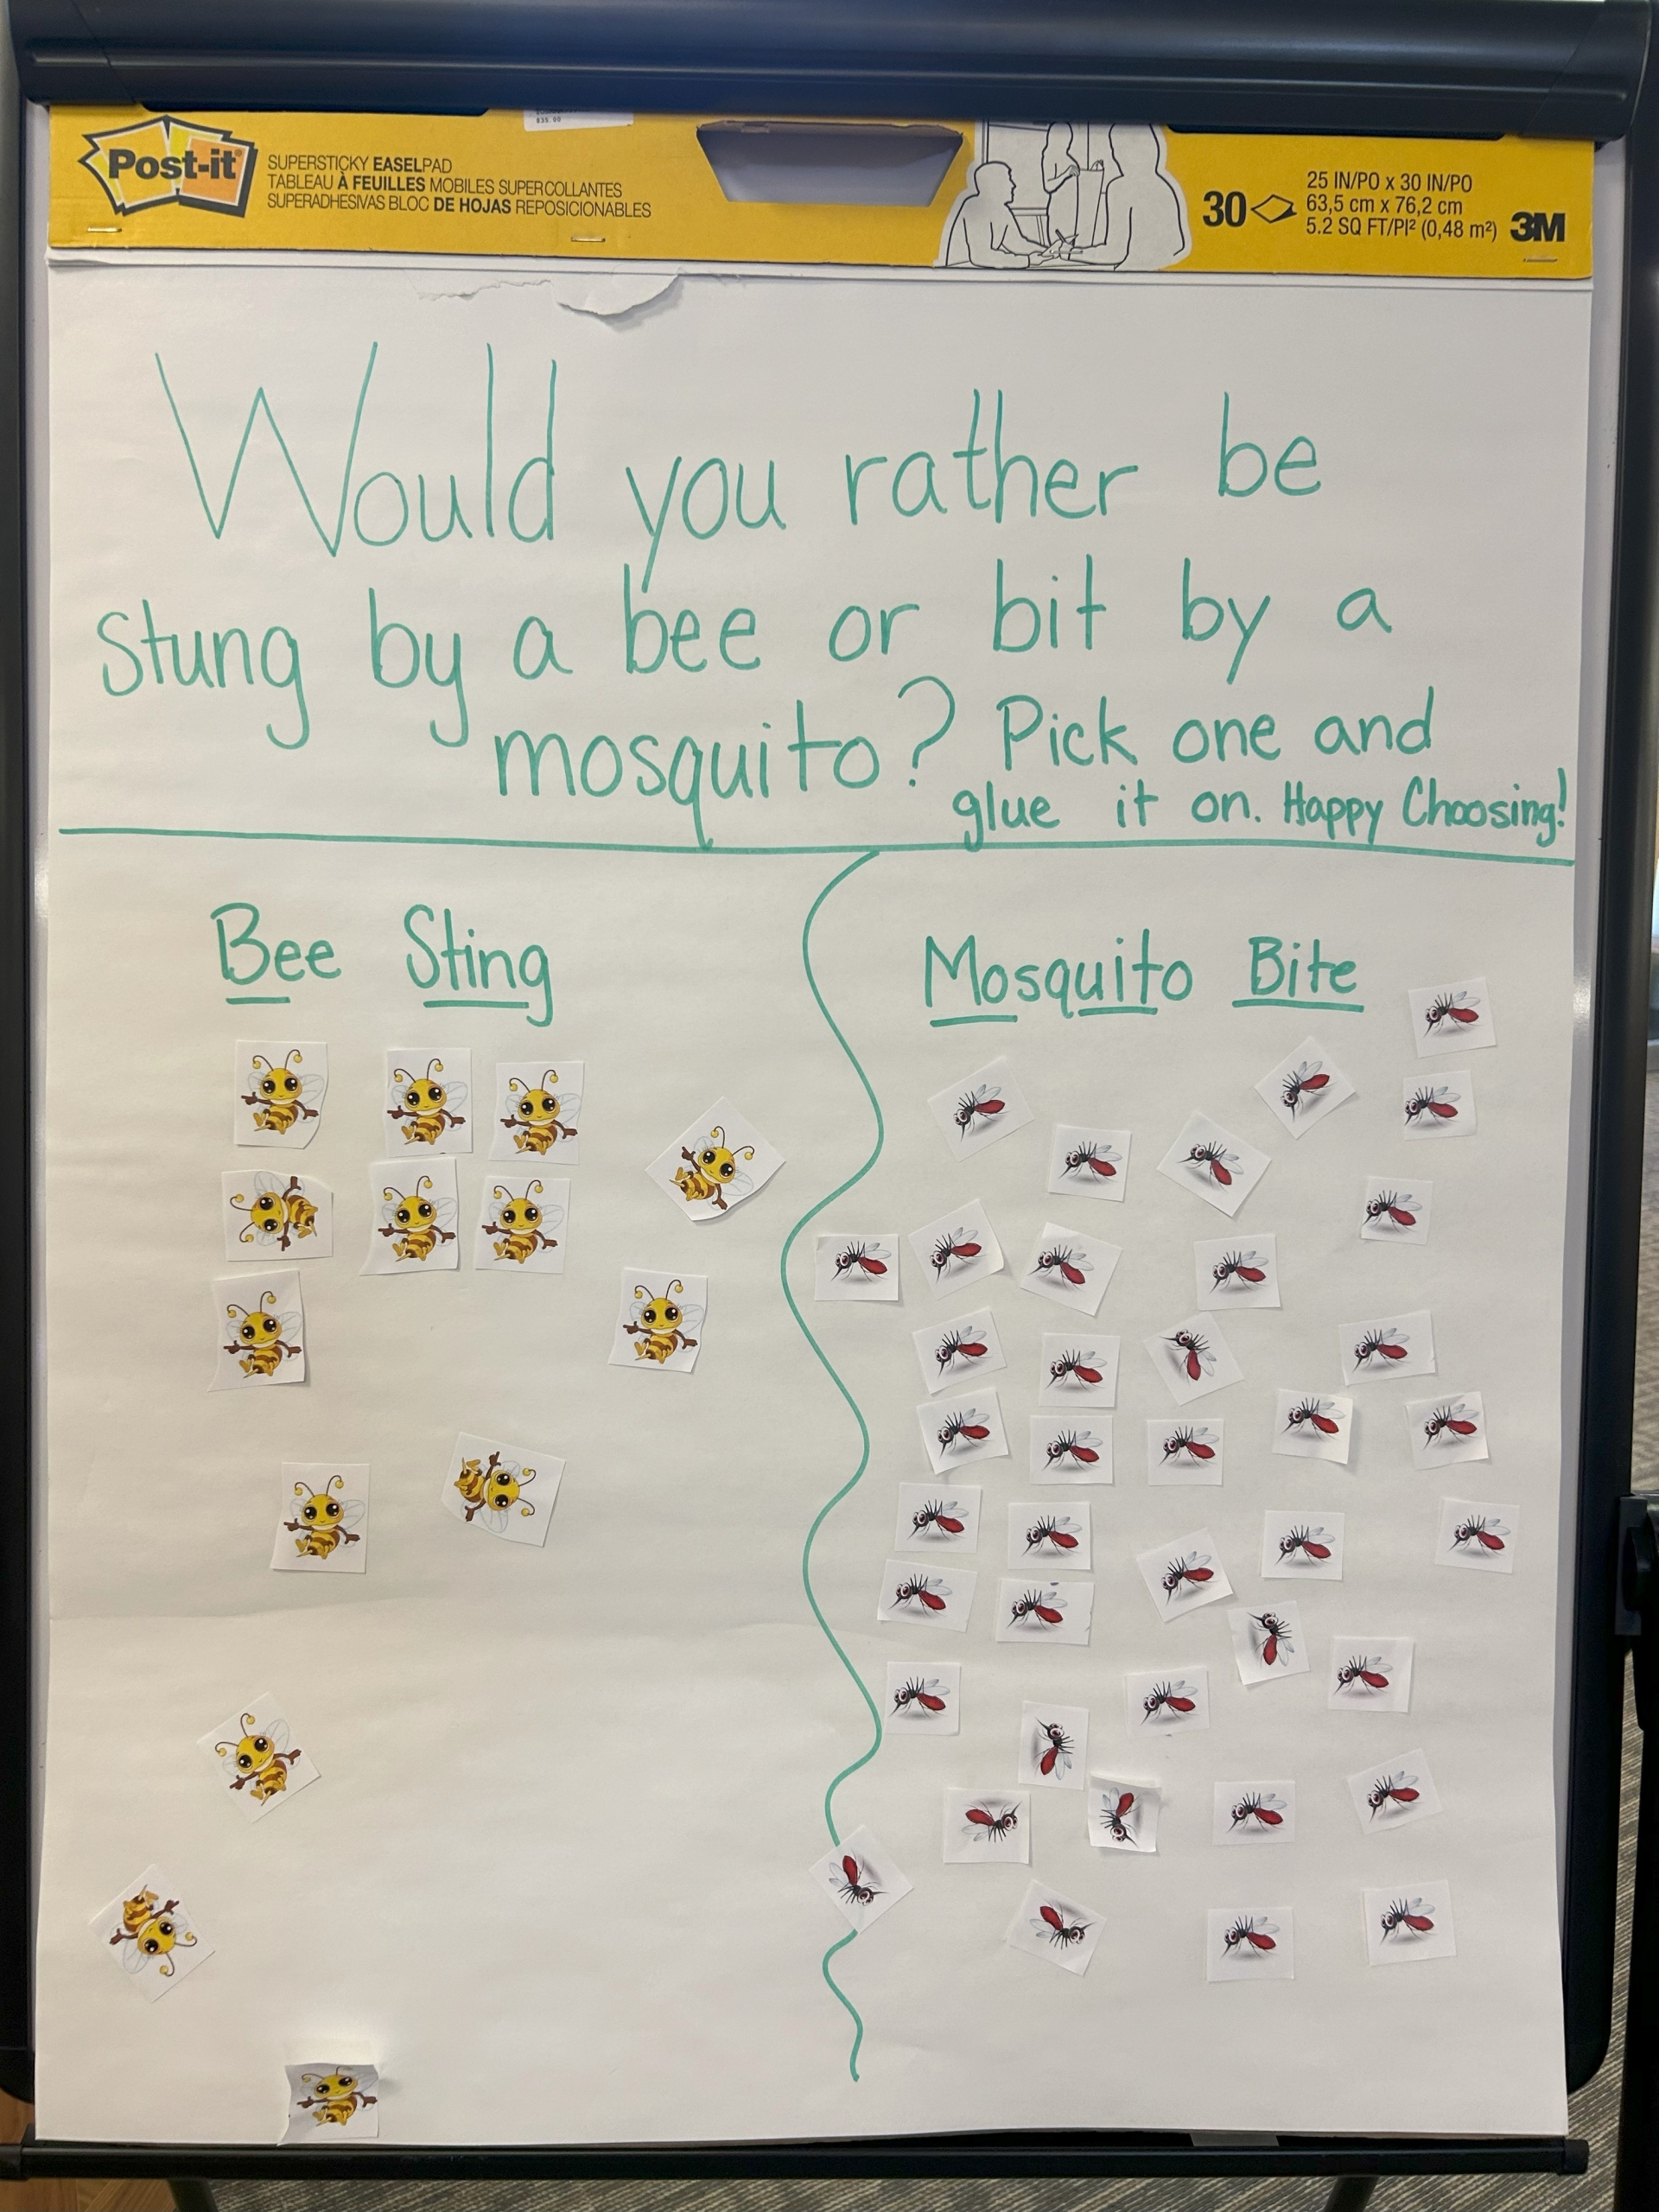 $35.00
Post-it
SUPERSTICKY EASELPAD
TABLEAU À FEUILLES MOBILES SUPERCOLLANTES
SUPERADHESIVAS BLOC DE HOJAS REPOSICIONABLES
30
25 IN/PO x 30 IN/PO
63,5 cm x 76,2 cm
5.2 SQ FT/PI² (0,48 m²)
3M
Would you rather be
stung by a bee or bit by a
mosquito? Pick one and
glue it on. Happy Choosing!
Bee Sting
Mosquito Bite